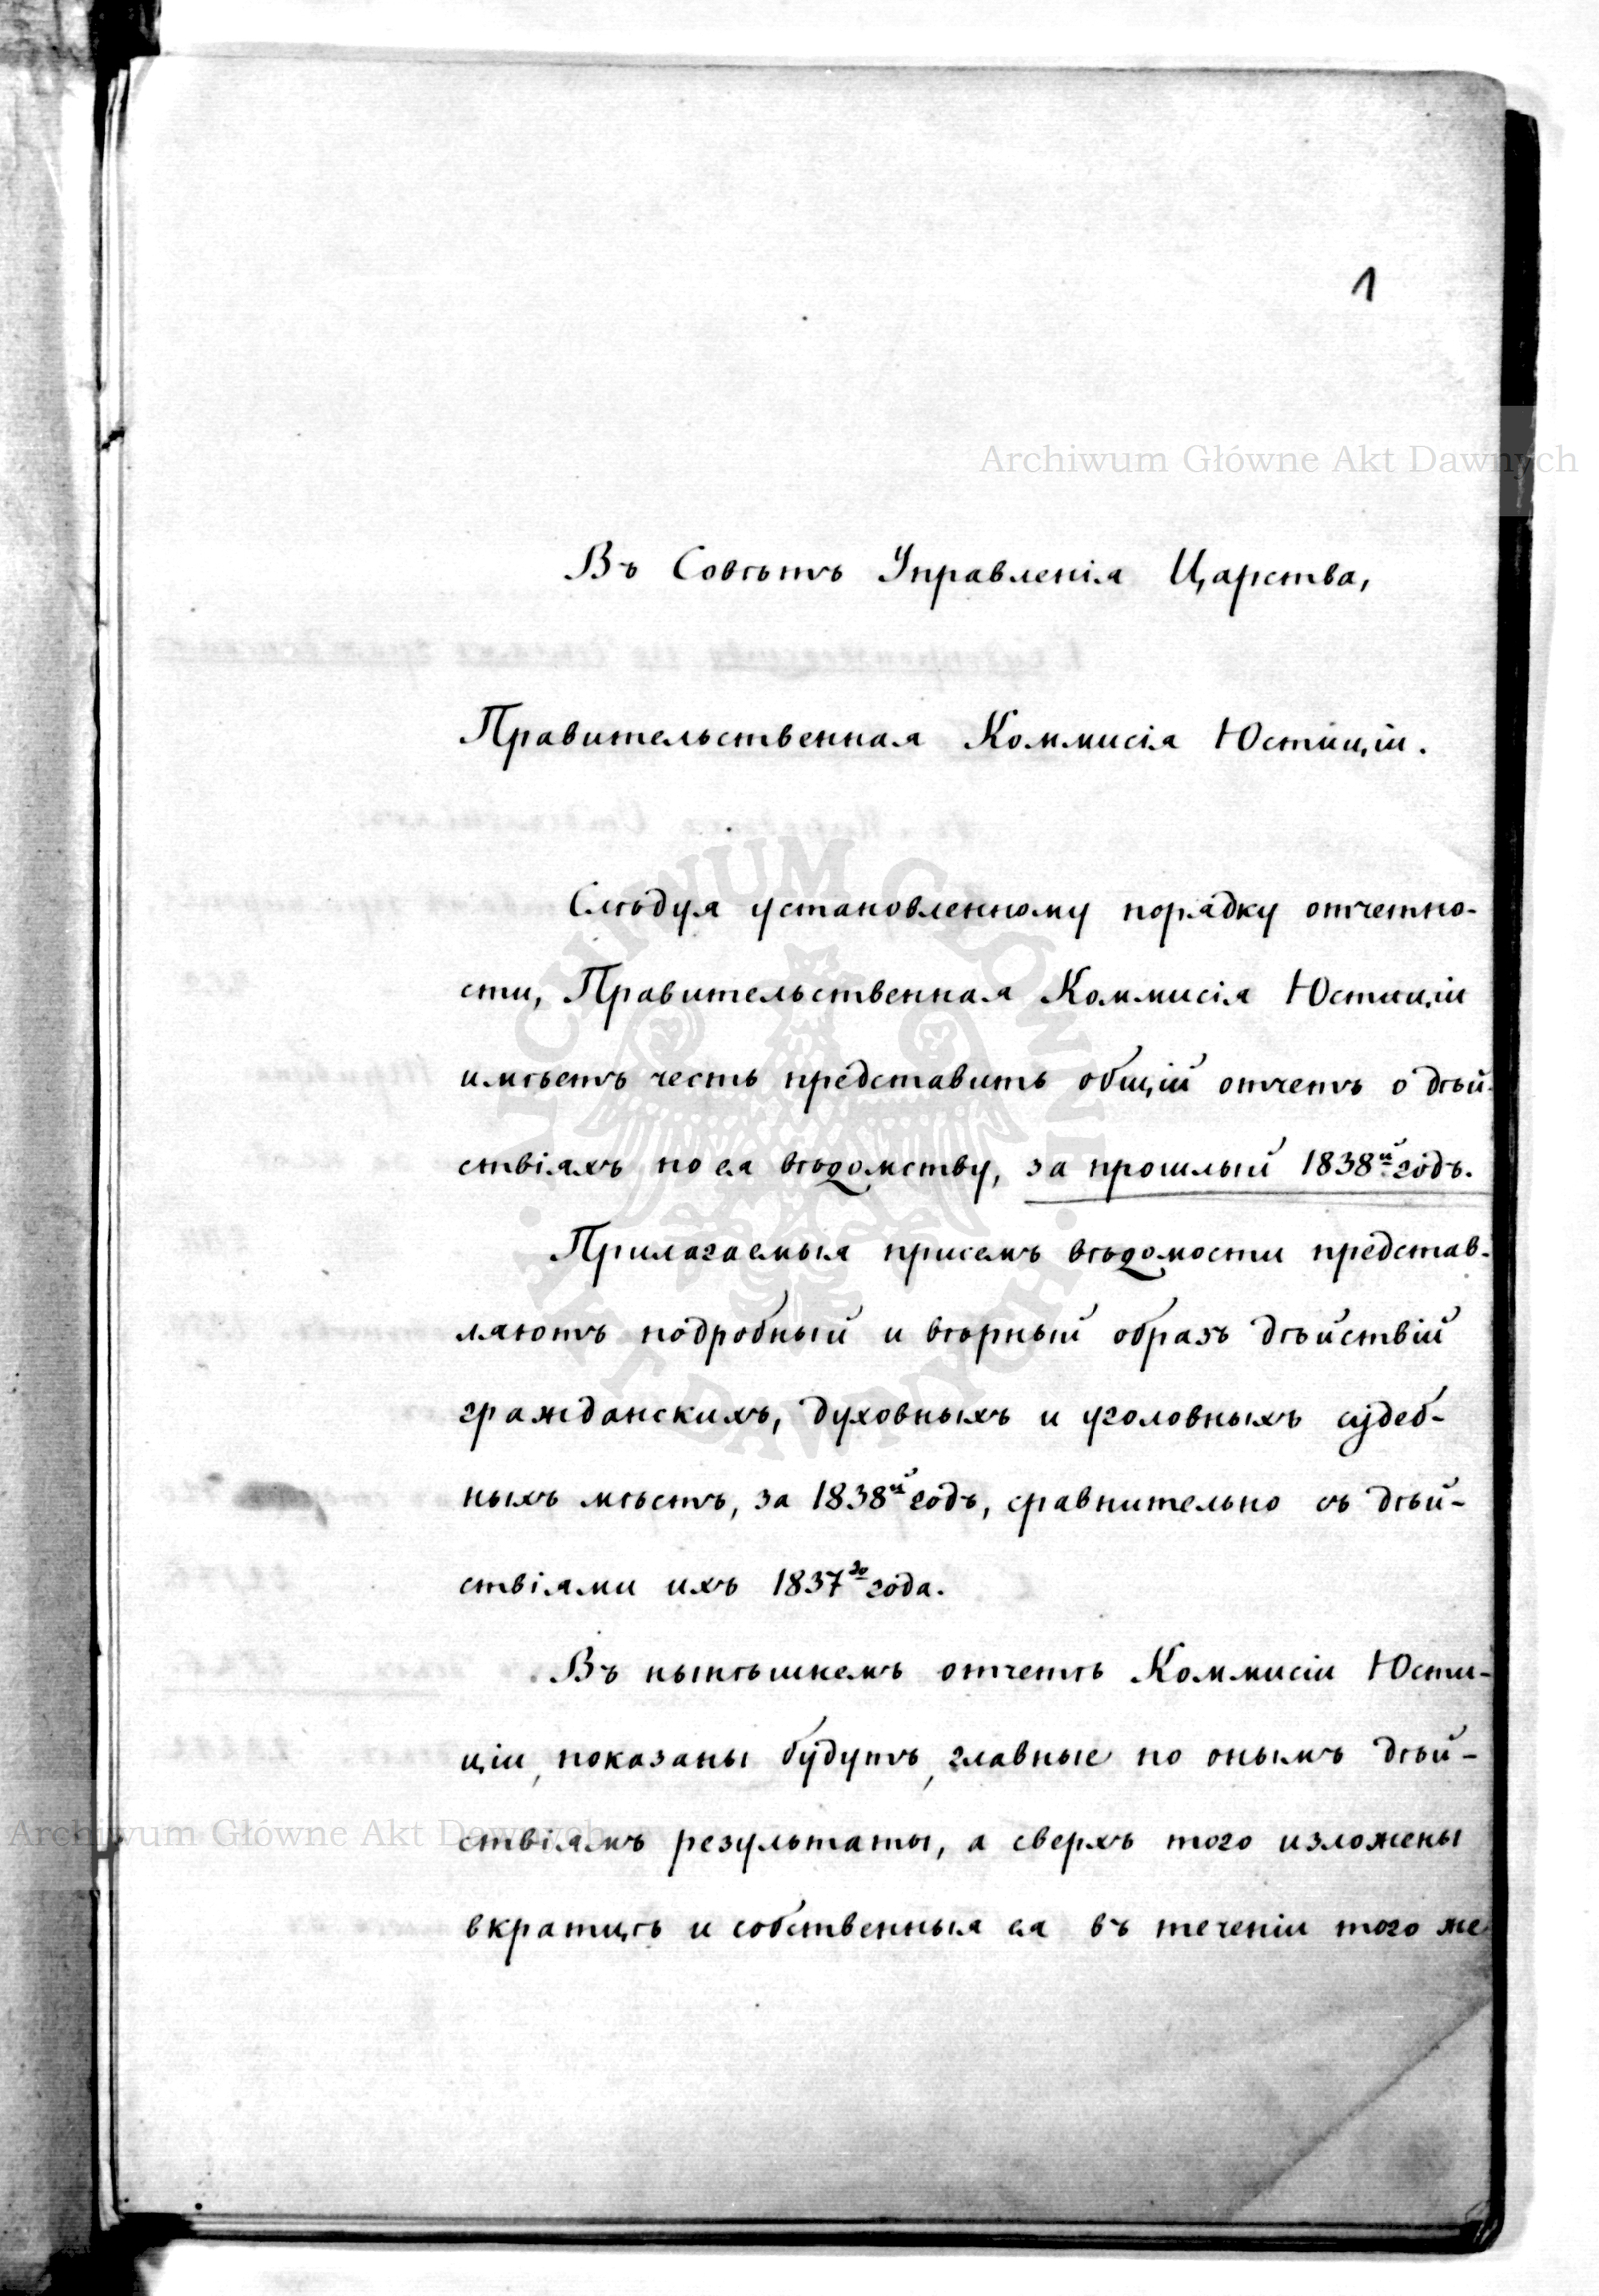 1
Archiwum Główne Akt Dawnych
Въ Совѣтъ Управленія Царства,
Правительственная Коммисія Юстиціи.
Слѣдуя установленному порядку отчетно-
сти, Правительственная Коммисія Юстиціи
имѣетъ честь представить общій отчетъ о дѣй-
ствіяхъ по ея вѣдомству, за прошлый 1838й годъ.
Прилагаемыя присемъ вѣдомости представ-
ляютъ подробный и вѣрный образъ дѣйствій
гражданскихъ, духовныхъ и уголовныхъ судеб-
ныхъ мѣстъ, за 1838й годъ, сравнительно съ дѣй-
ствіями ихъ 1837го года.
Въ нынѣшнемъ отчетѣ Коммисіи Юсти-
ціи, показаны будутъ, главные по онымъ дѣй-
ствіямъ результаты, а сверхъ того изложены
Archiwum Główne Akt Dawnych
вкратцѣ и собственныя ея въ теченіи того же
ARCHIWUM GŁÓWNE · AKT DAWNYCH ·